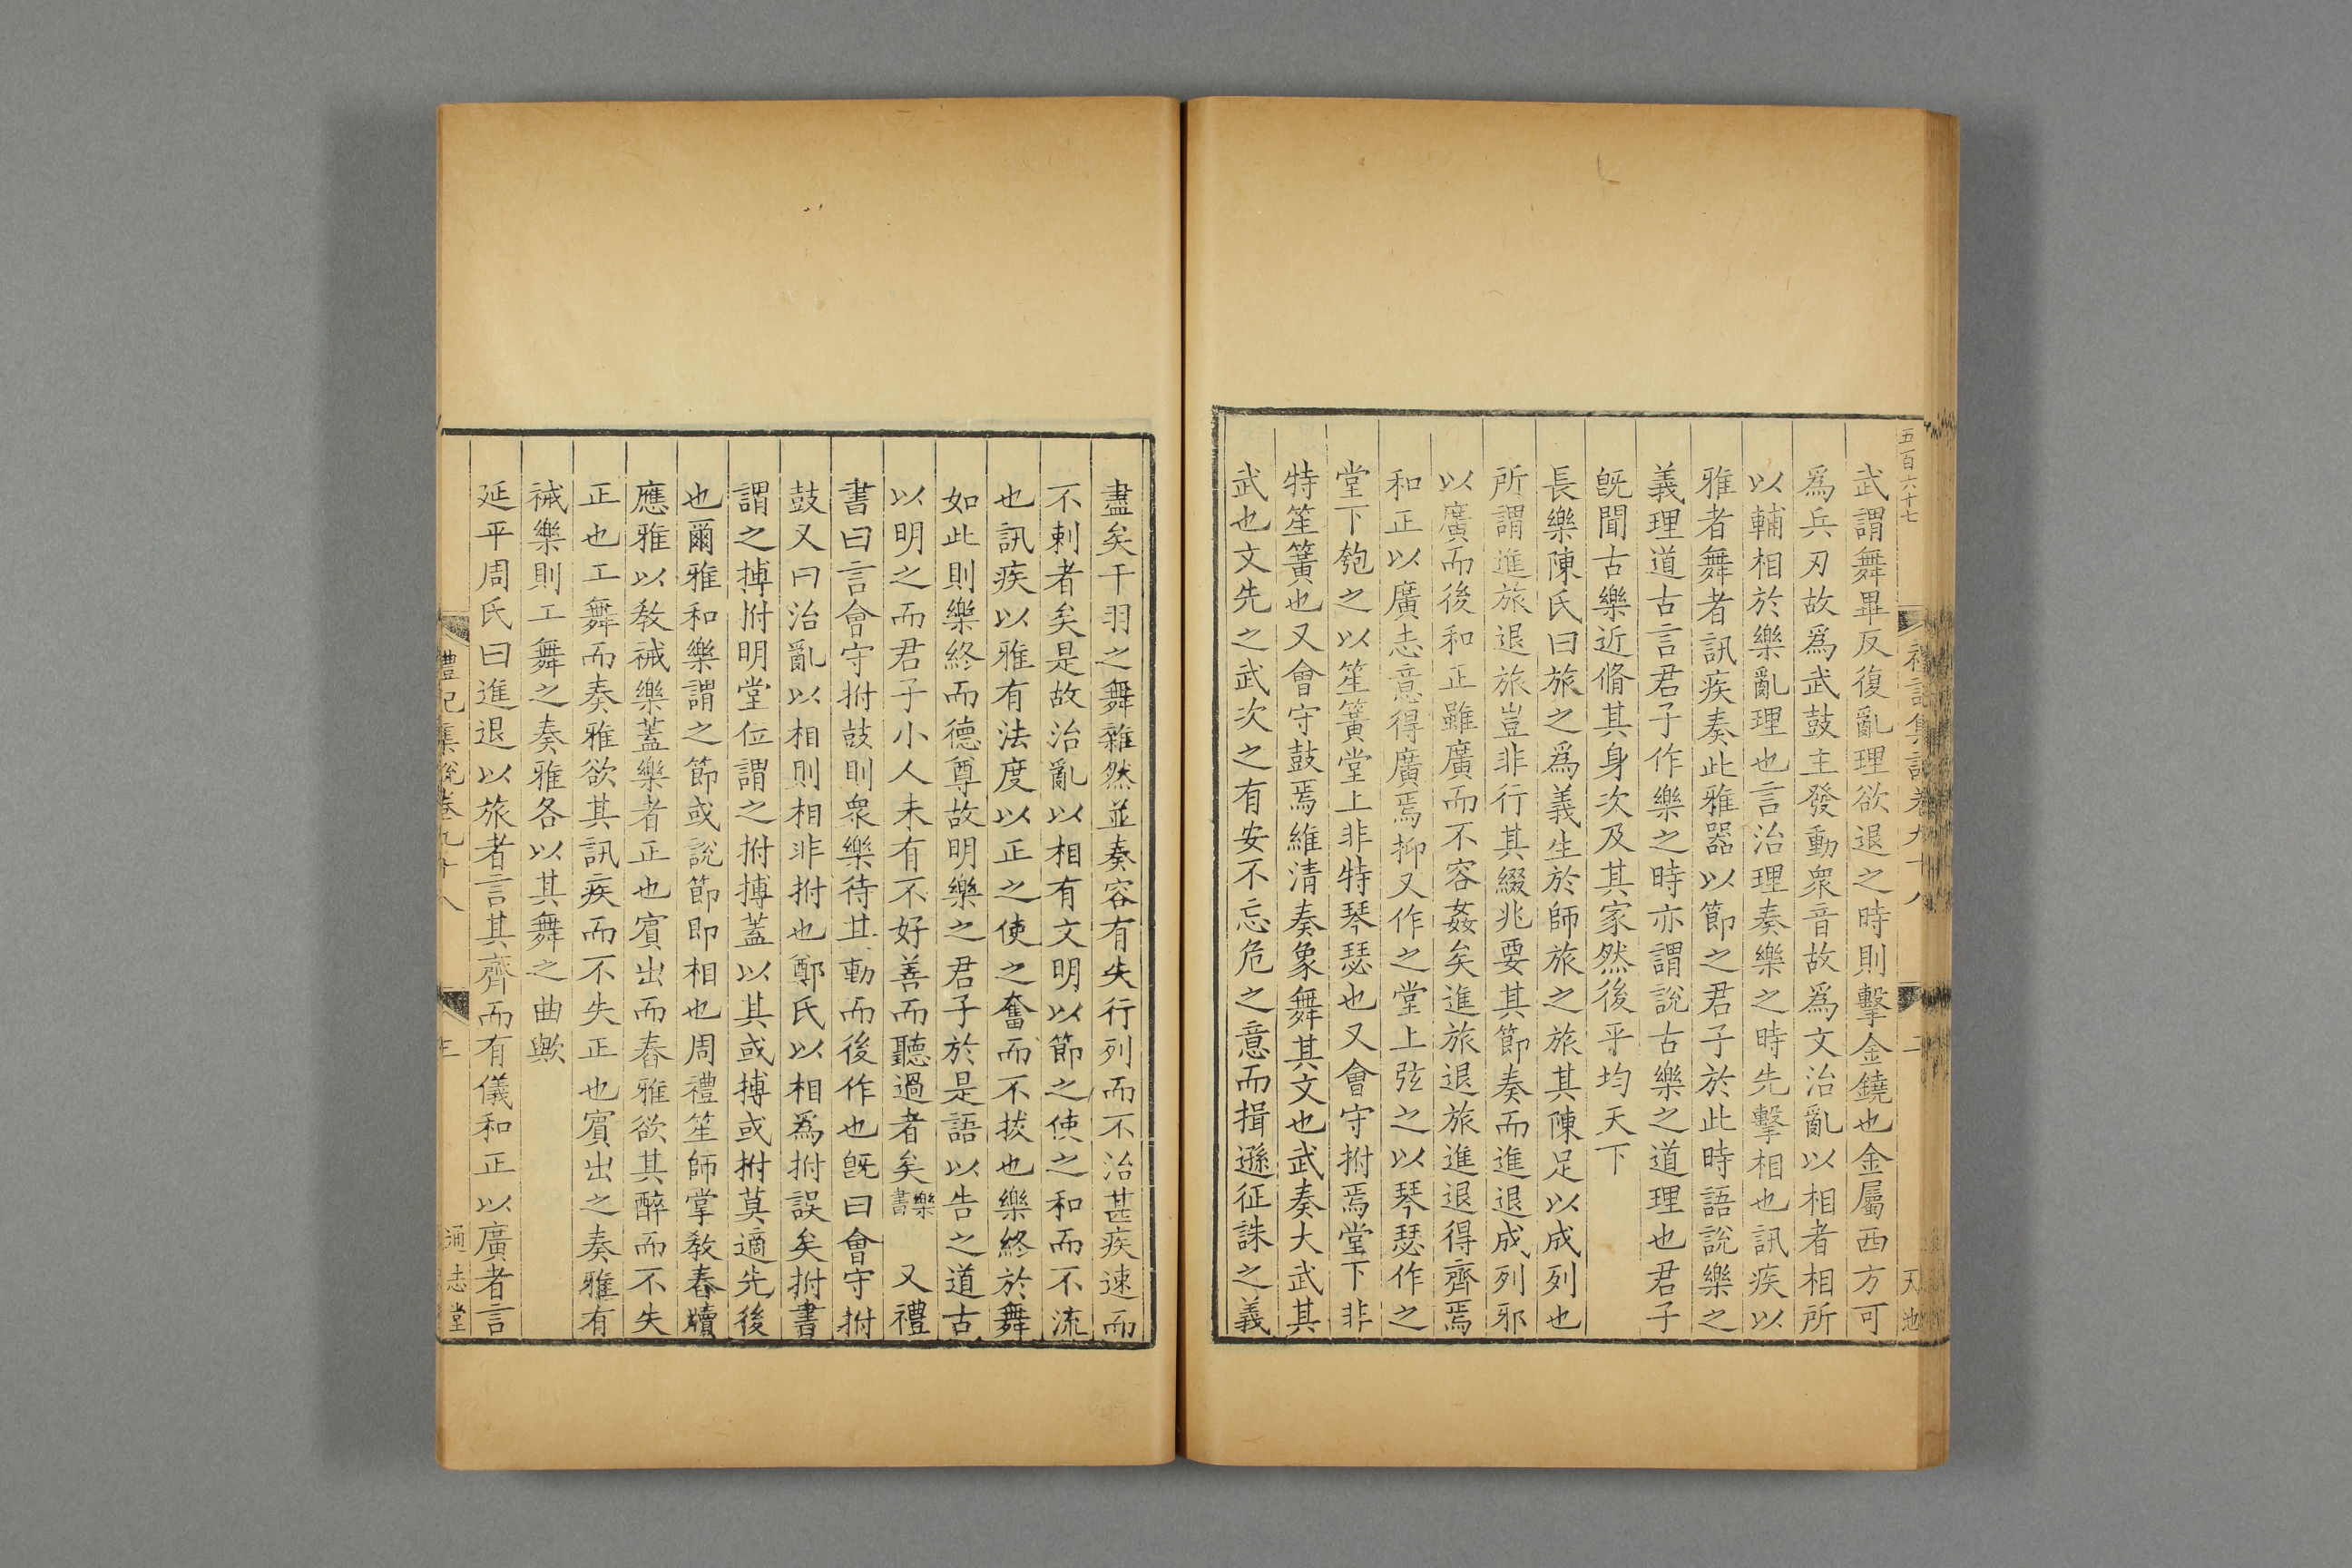 五百六十七
禮記集說卷九十八
二
天池
武謂舞畢反復亂理欲退之時則擊金鐃也金屬西方可
爲兵刃故爲武鼓主發動衆音故爲文治亂以相者相所
以輔相於樂亂理也言治理奏樂之時先擊相也訊疾以
雅者舞者訊疾奏此雅器以節之君子於此時語說樂之
義理道古言君子作樂之時亦謂說古樂之道理也君子
旣聞古樂近脩其身次及其家然後平均天下
長樂陳氏曰旅之爲義生於師旅之旅其陳足以成列也
所謂進旅退旅豈非行其綴兆要其節奏而進退成列邪
以廣而後和正雖廣而不容姦矣進旅退旅進退得齊焉
和正以廣志意得廣焉抑又作之堂上弦之以琴瑟作之
堂下匏之以笙簧堂上非特琴瑟也又會守拊焉堂下非
特笙簧也又會守鼓焉維清奏象舞其文也武奏大武其
武也文先之武次之有安不忘危之意而揖遜征誅之義
盡矣干羽之舞雜然並奏容有失行列而不治甚疾速而
不刺者矣是故治亂以相有文明以節之使之和而不流
也訊疾以雅有法度以正之使之奮而不拔也樂終於舞
如此則樂終而德尊故明樂之君子於是語以告之道古
以明之而君子小人未有不好善而聽過者矣樂書 又禮
書曰言會守拊鼓則衆樂待其動而後作也旣曰會守拊
鼓又曰治亂以相則相非拊也鄭氏以相爲拊誤矣拊書
謂之搏拊明堂位謂之拊搏蓋以其或搏或拊莫適先後
也爾雅和樂謂之節或說節即相也周禮笙師掌敎舂牘
應雅以敎祴樂蓋樂者正也賓出而舂雅欲其醉而不失
正也工舞而奏雅欲其訊疾而不失正也賓出之奏雅有
祴樂則工舞之奏雅各以其舞之曲歟
延平周氏曰進退以旅者言其齊而有儀和正以廣者言
禮記集說卷九十八
通志堂